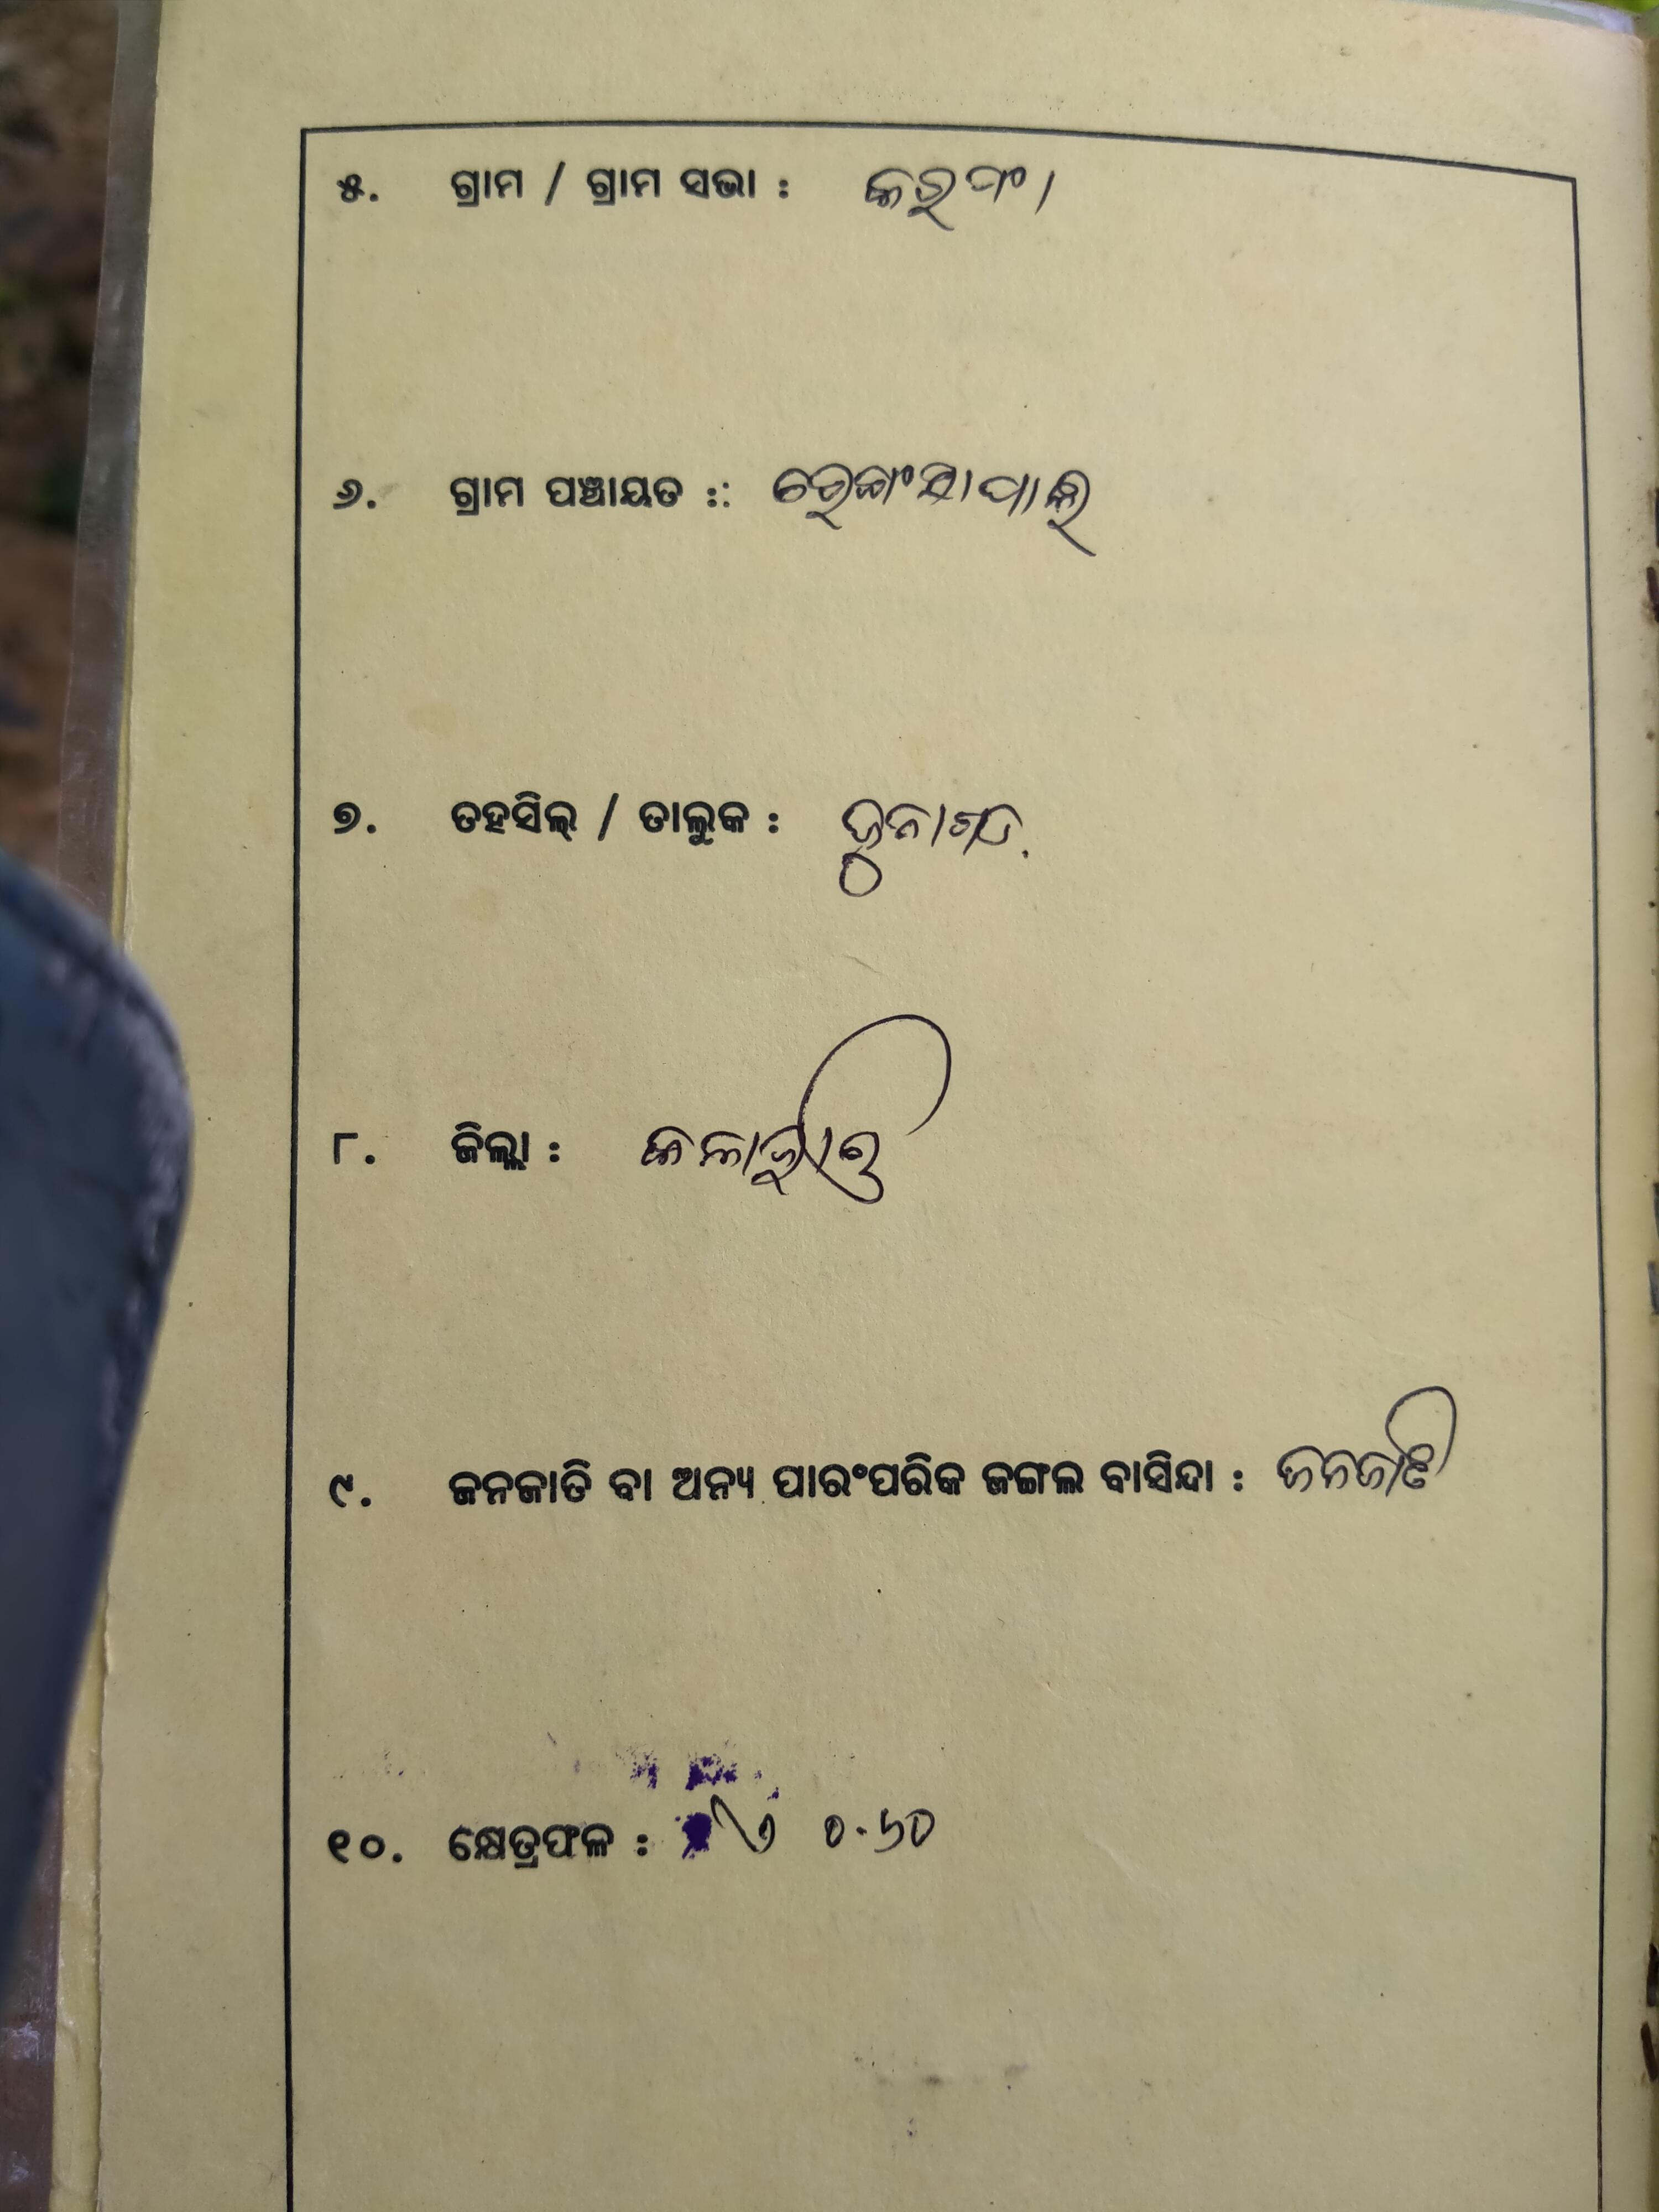 ୫. ଗ୍ରାମ / ଗ୍ରାମ ସଭା : କରପଂ।
୬. ଗ୍ରାମ ପଞ୍ଚାୟତ :: ଚେରେଙ୍ଗସାପାଲ
୭. ତହସିଲ୍ / ତାଲୁକ : ଜୁନାଗଡ.
୮. ଜିଲ୍ଲା : କଳାହାଣ୍ଡି
୯. ଜନଜାତି ବା ଅନ୍ୟ ପାରଂପରିକ ଜଙ୍ଗଲ ବାସିନ୍ଦା : ଜନଜାତି
୧୦. କ୍ଷେତ୍ରଫଳ : ୦.୬୦